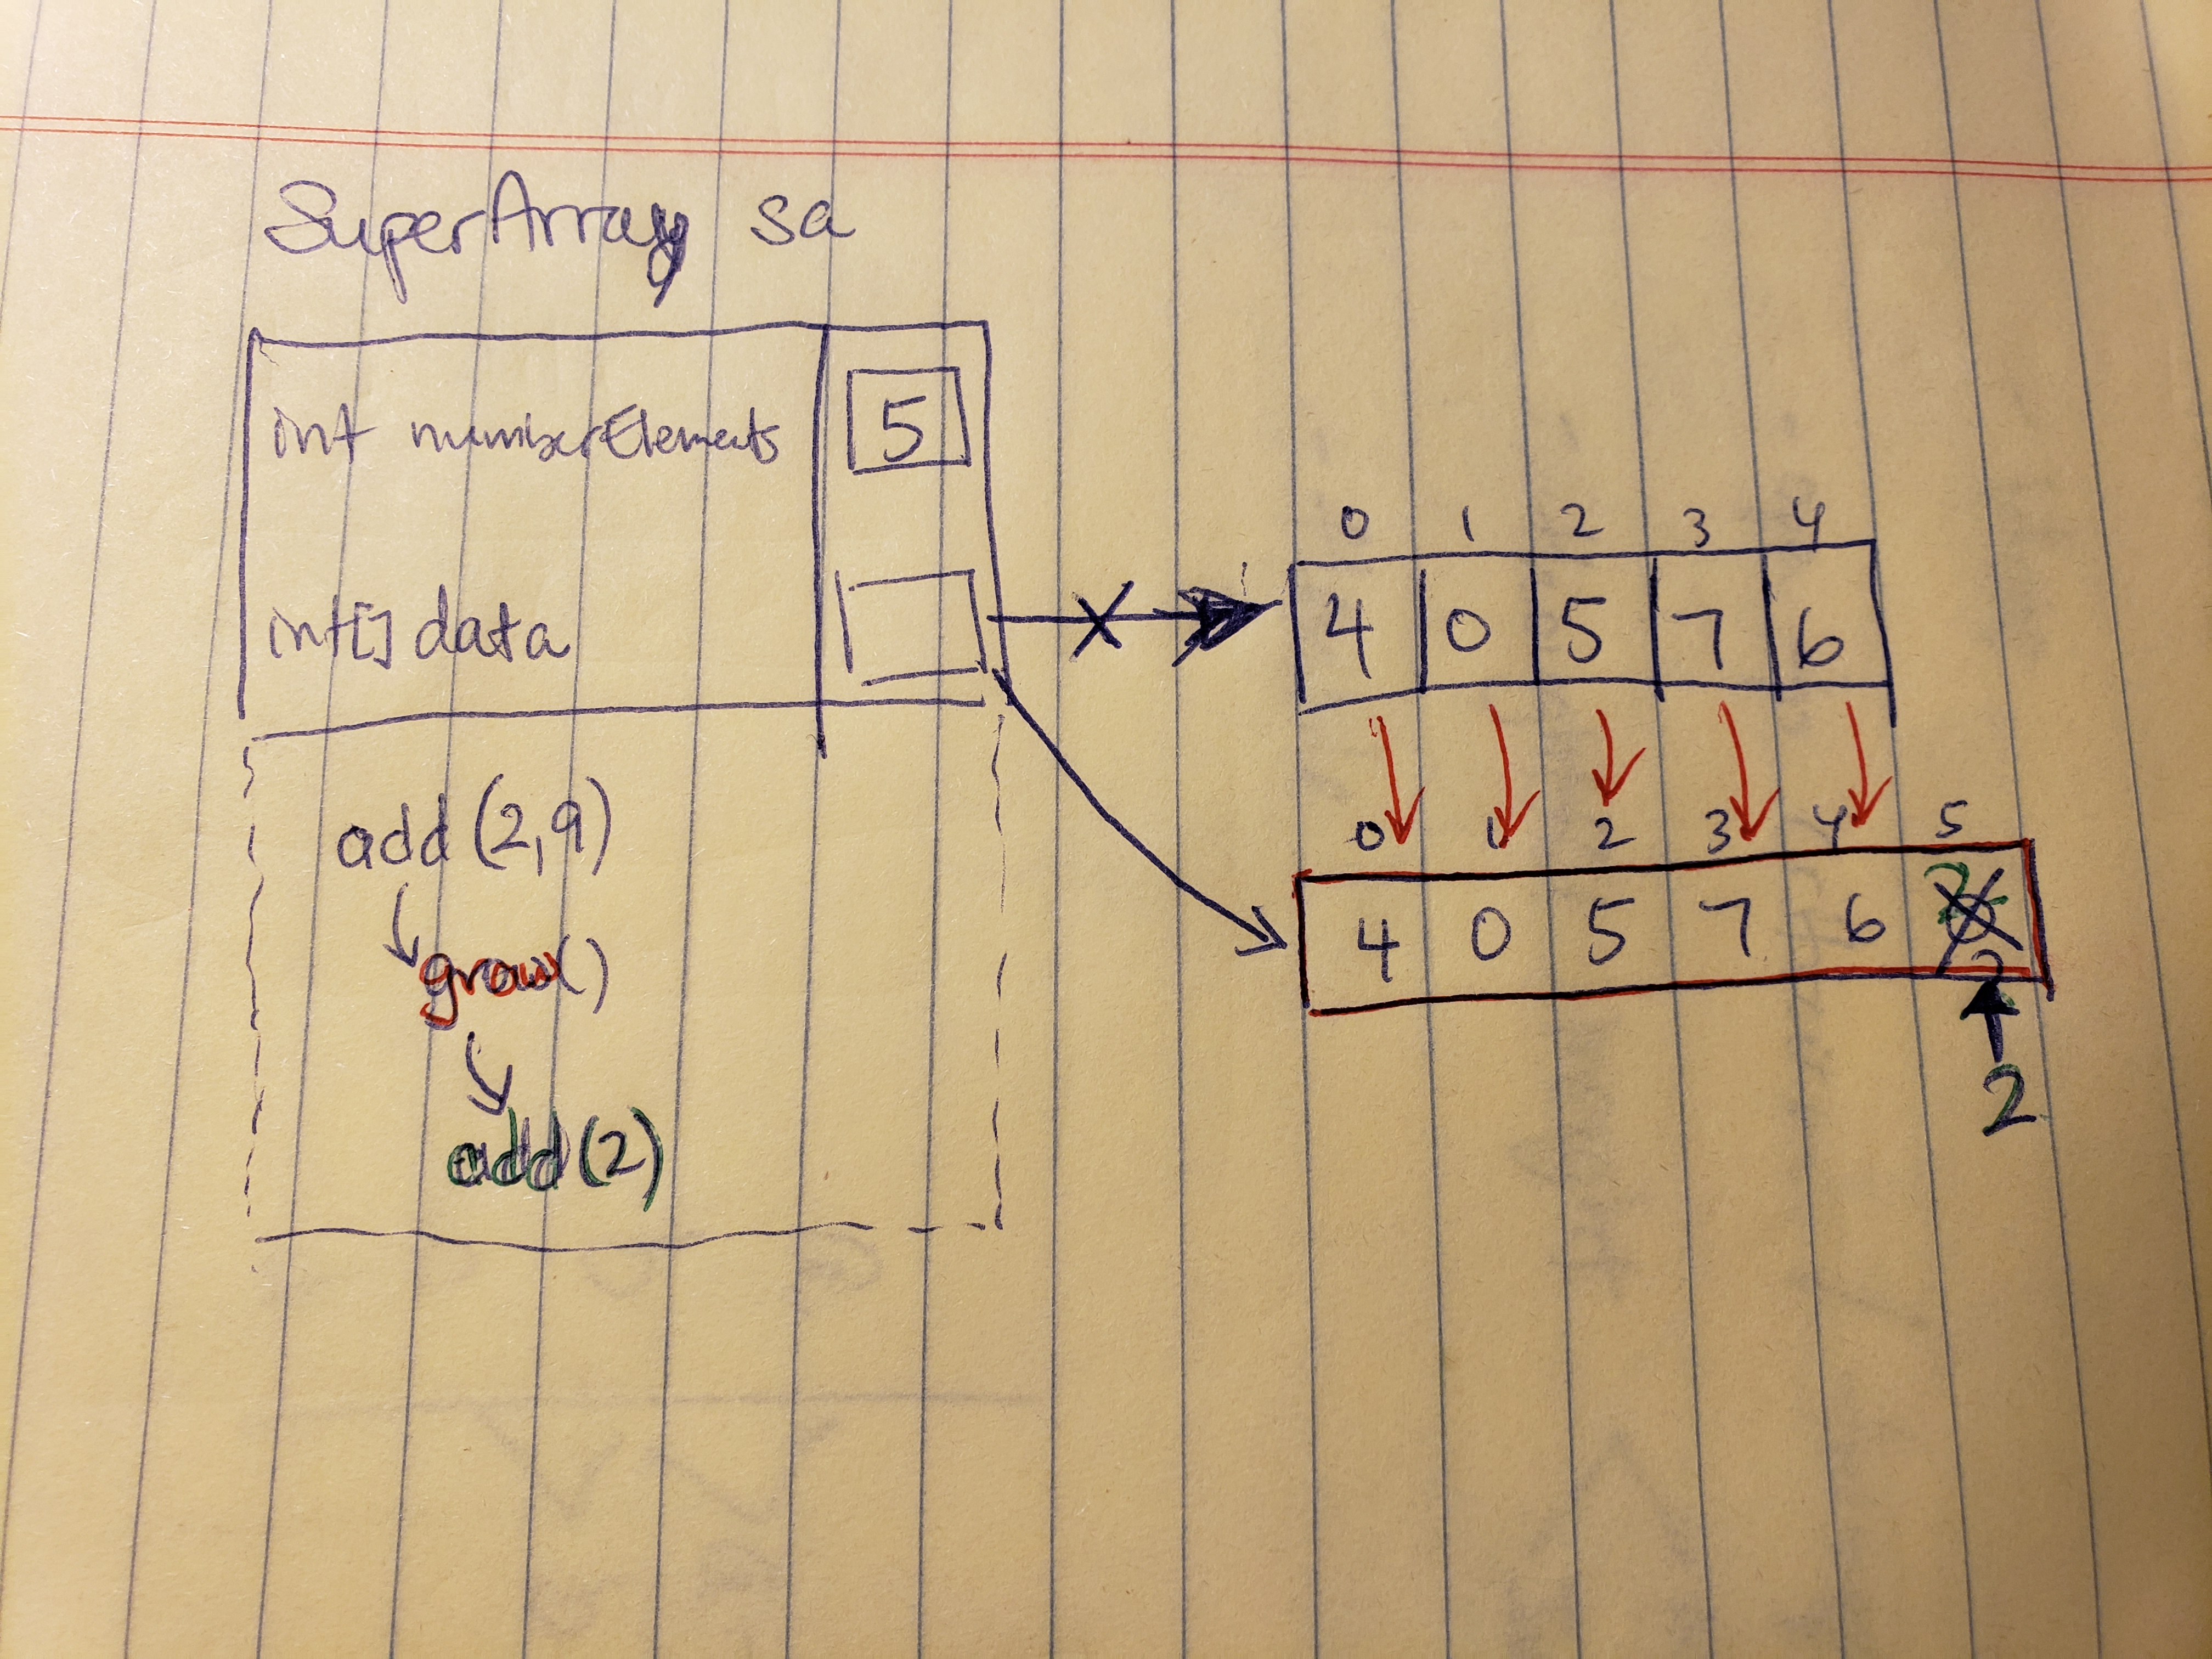 SuperArray sa
int numberElements 5
int[] data
0 1 2 3 4
4 0 5 7 6
0 1 2 3 4 5
4 0 5 7 6
2
add(2,9)
grow()
add(2)